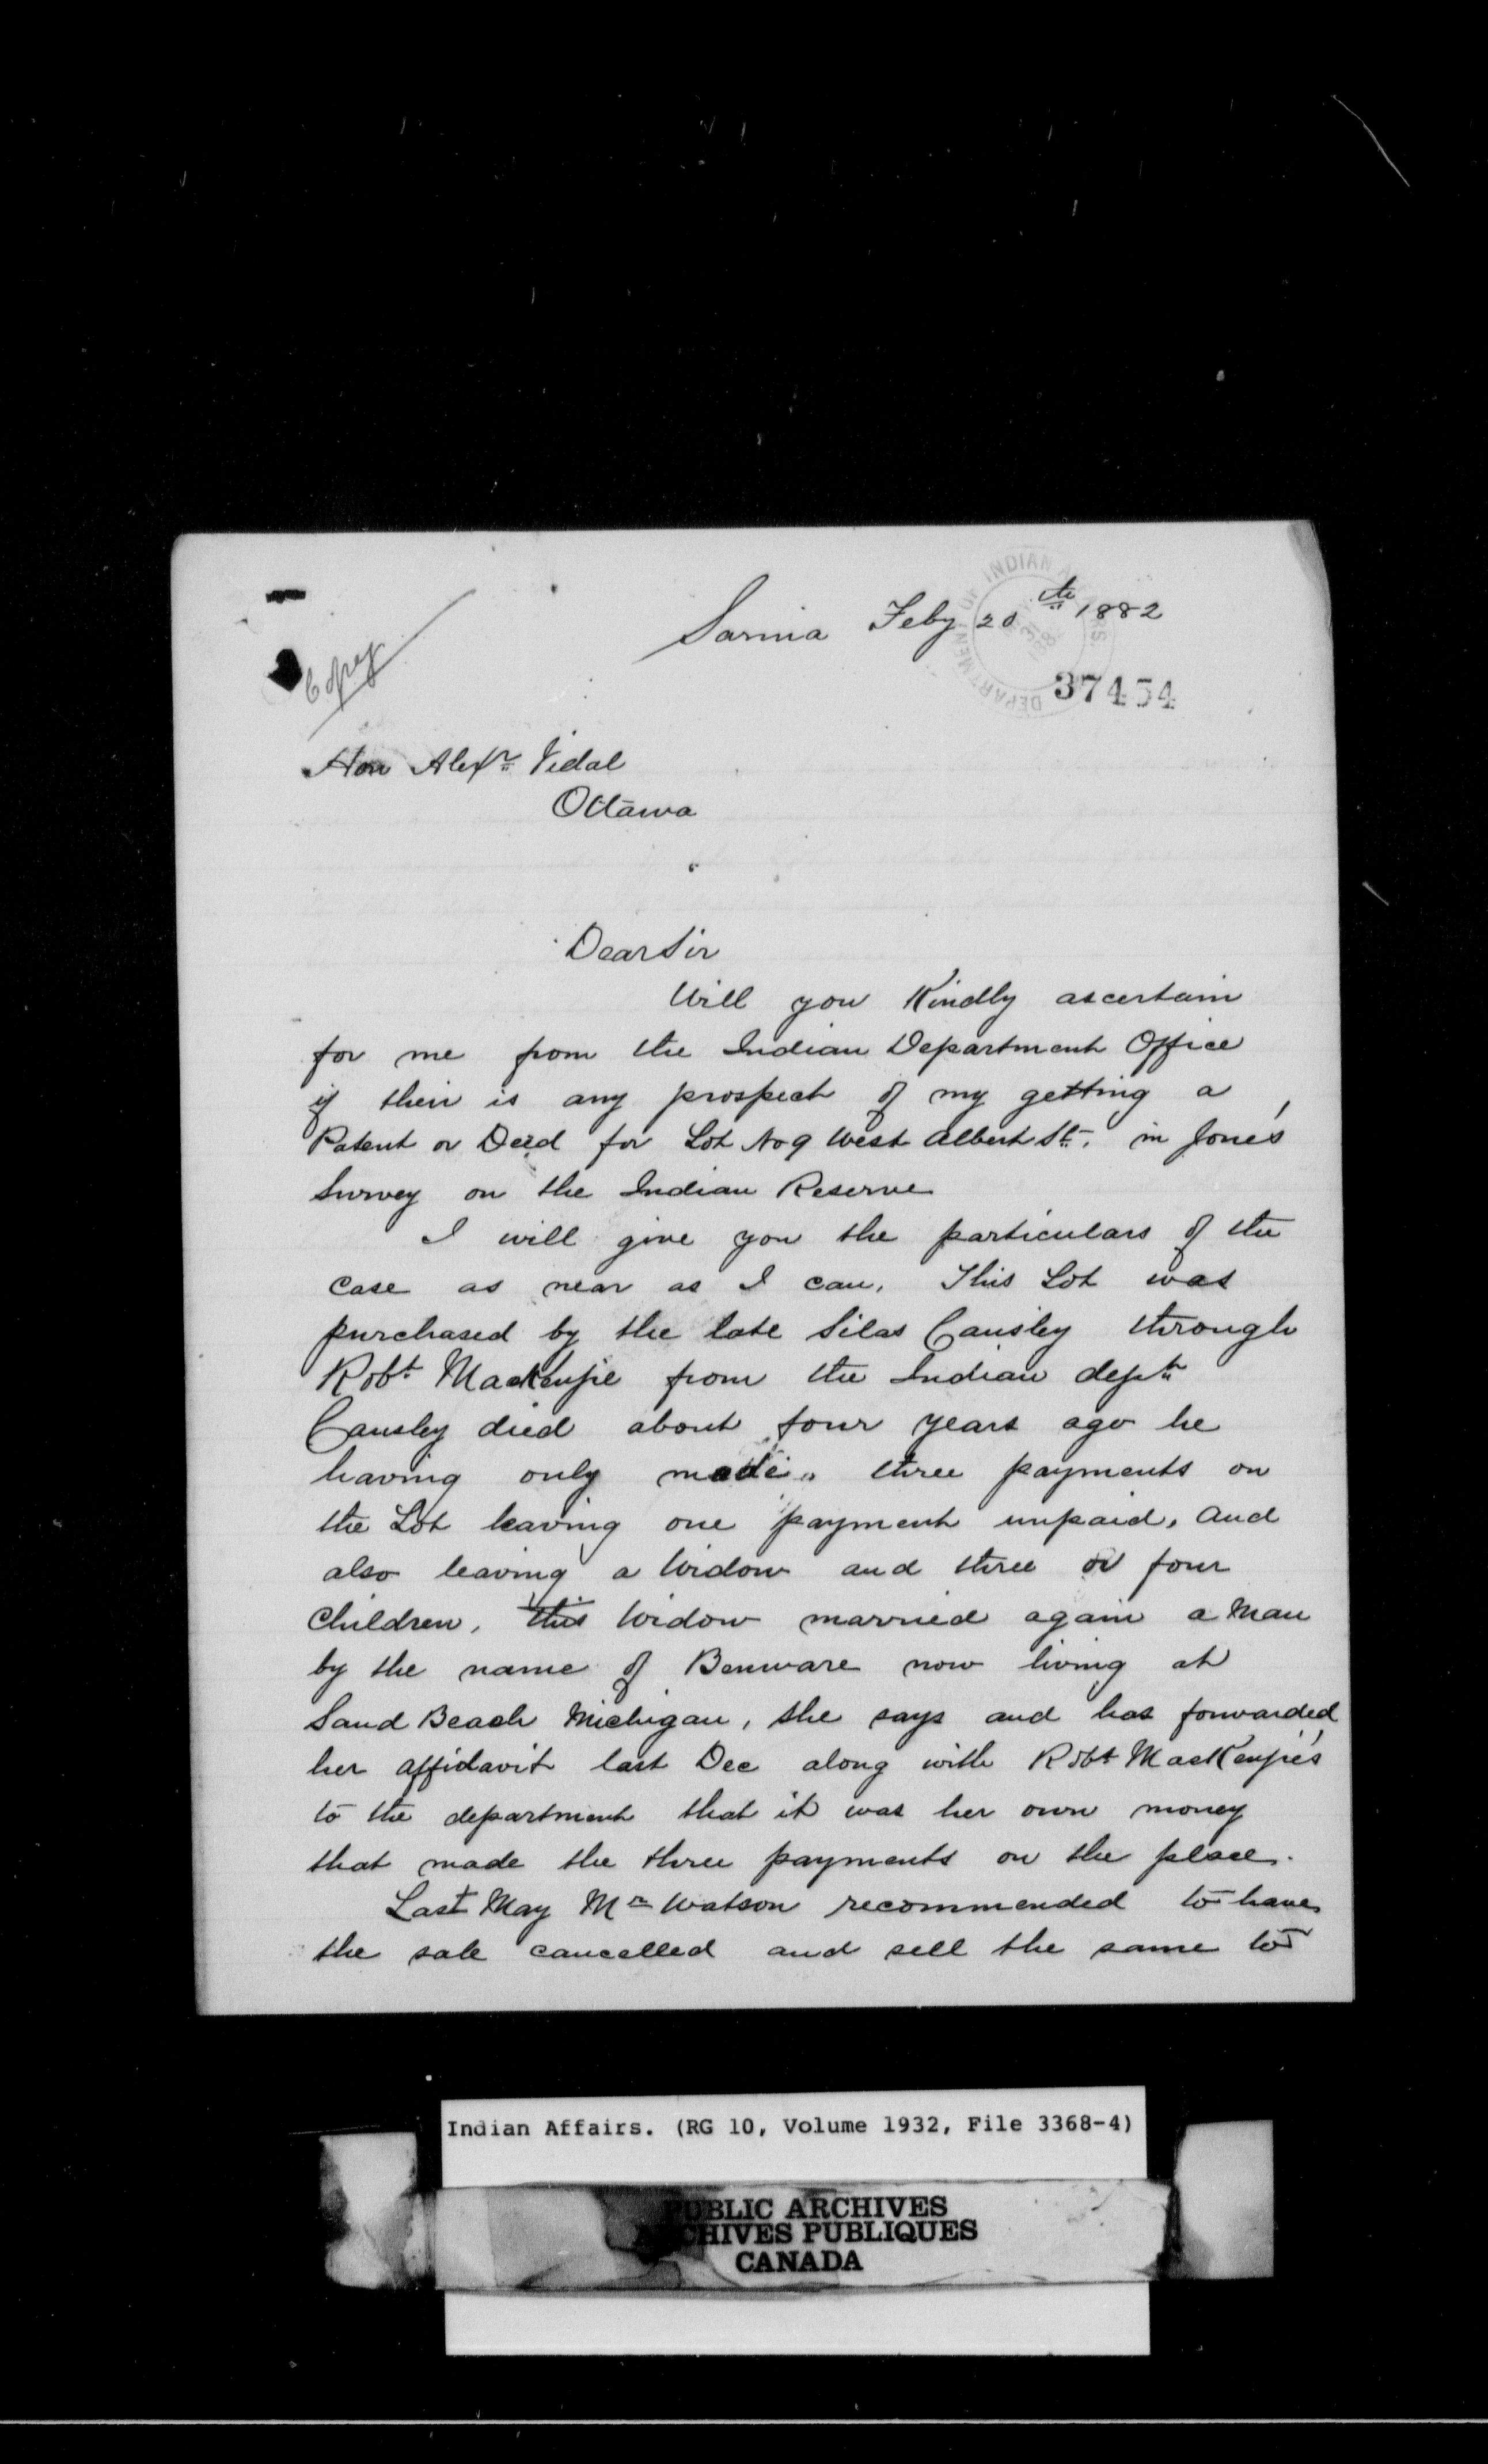 Sarnia Feby 20th 1882
DEPARTMENT OF INDIAN
37454
Copy
Hon Alexr. Vidal
Ottawa
Dear Sir
Will you Kindly ascertain
for me from the Indian Department Office
if their is any prospect of my getting a
Patent or Deed for Lot No 9 West Albert St. in Jone's
Survey on the Indian Reserve
I will give you the particulars of the
case as near as I can, This Lot was
purchased by the late Silas Causley through
Robt MacKenzie from the Indian dept
Causley died about four years ago he
having only made three payments on
the Lot leaving one payment unpaid, and
also leaving a Widow and three or four
Children, this Widow married again a Man
by the name of Benware now living at
Sand Beach Michigan, she says and has forwarded
her affidavit last Dec along with Robt MacKenzie's
to the department that it was her own money
that made the three payments on the place.
Last May Mr Watson recommended to have
the sale cancelled and sell the same to
Indian Affairs. (RG 10, Volume 1932, File 3368-4)
PUBLIC ARCHIVES
ARCHIVES PUBLIQUES
CANADA